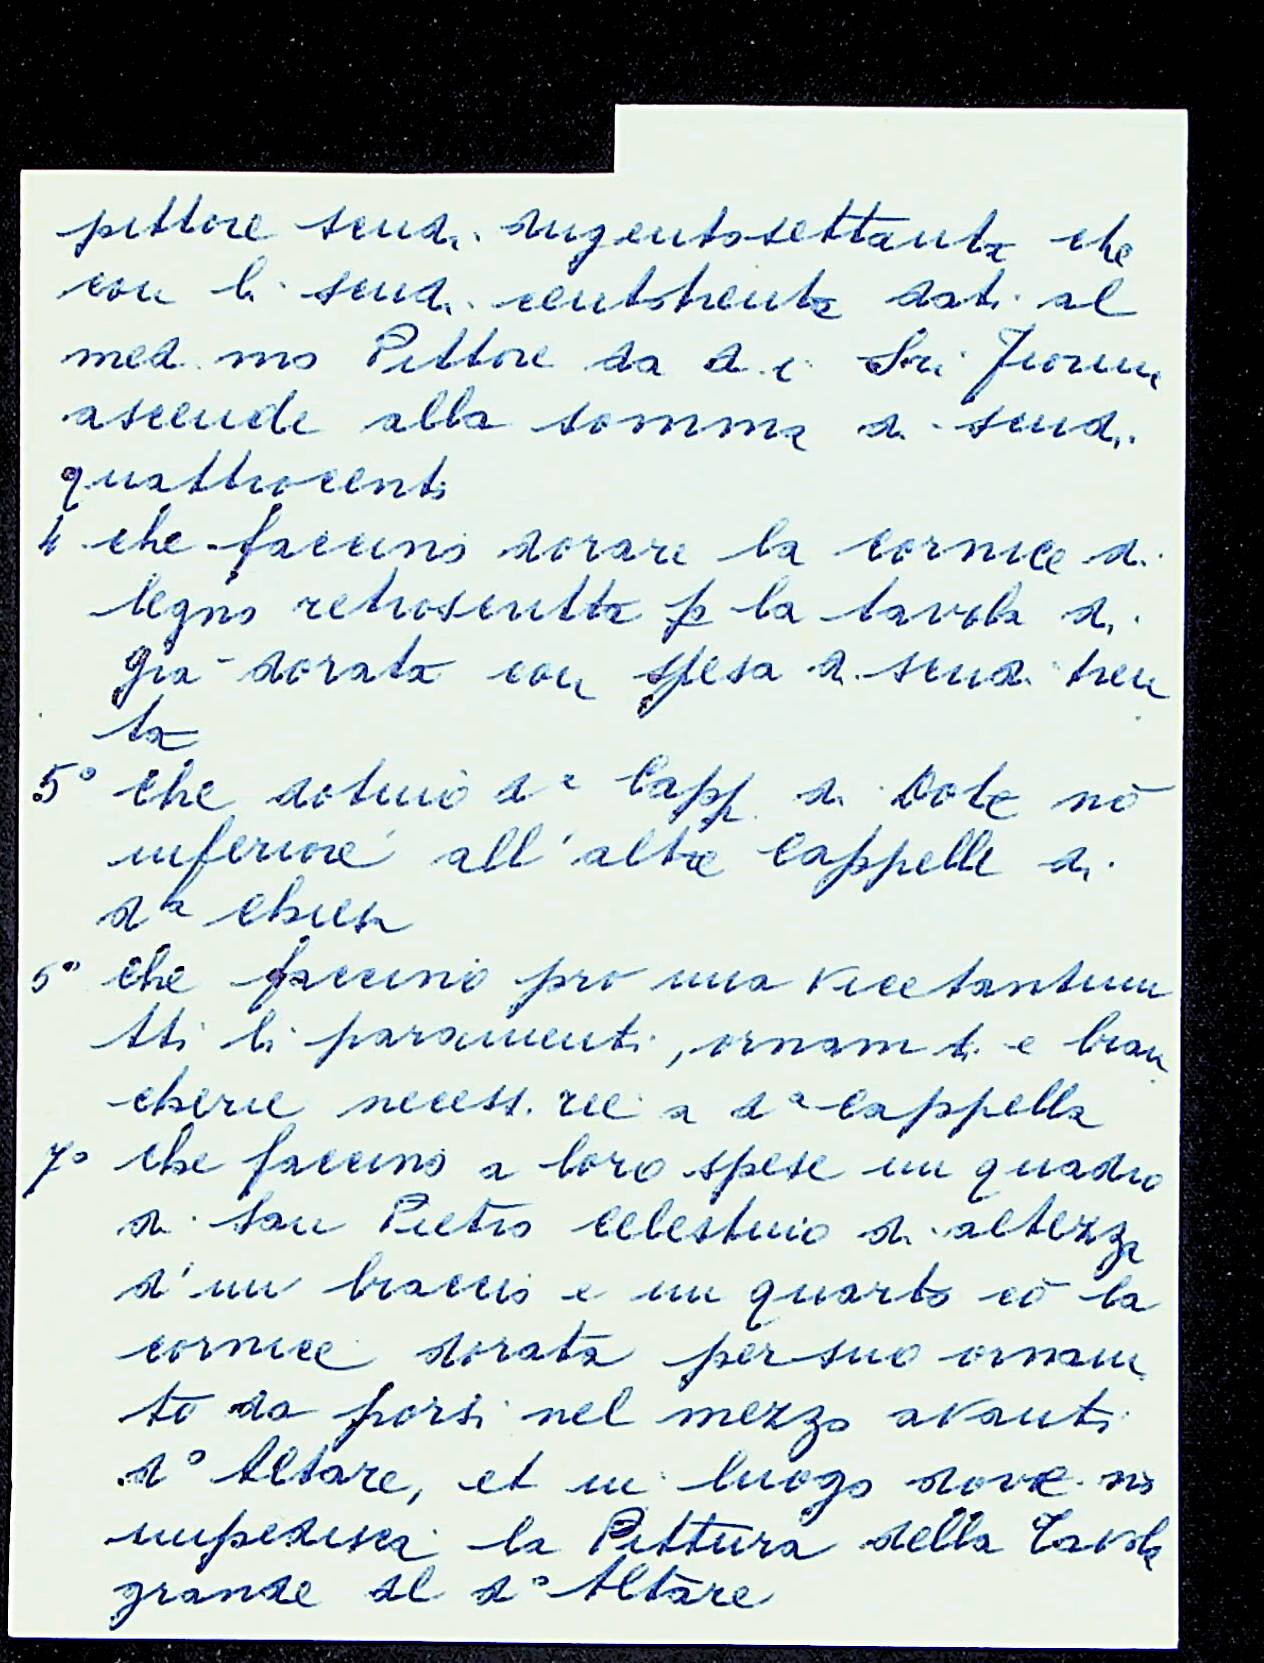 pittore scudi dugentosettanta che
con li scudi centotrenta dati al
med.mo Pittore da d.i Sri Fiorini
ascende alla somma di scudi
quattrocenti
4 che faccino dorare la cornice di
legno retroscritta p la tavola di
già dorata con spesa di scudi tren
ta
5° che dotino dª Capp. di Dote nō
inferiore all'altre Cappelle di
dª chiesa
5° che faccino pro una vice tantum
tti li paramenti, ornam.ti e bian
cherie necess.rie a dª Cappella
7° che faccino a loro spese un quadro
di San Pietro Celestino di altezza
d'un braccio e un quarto cō la
cornice dorata per suo ornam
to da porsi nel mezzo avanti
d° Altare, et in luogo dove nō
impedisca la Pittura della Tavola
grande al d° Altare